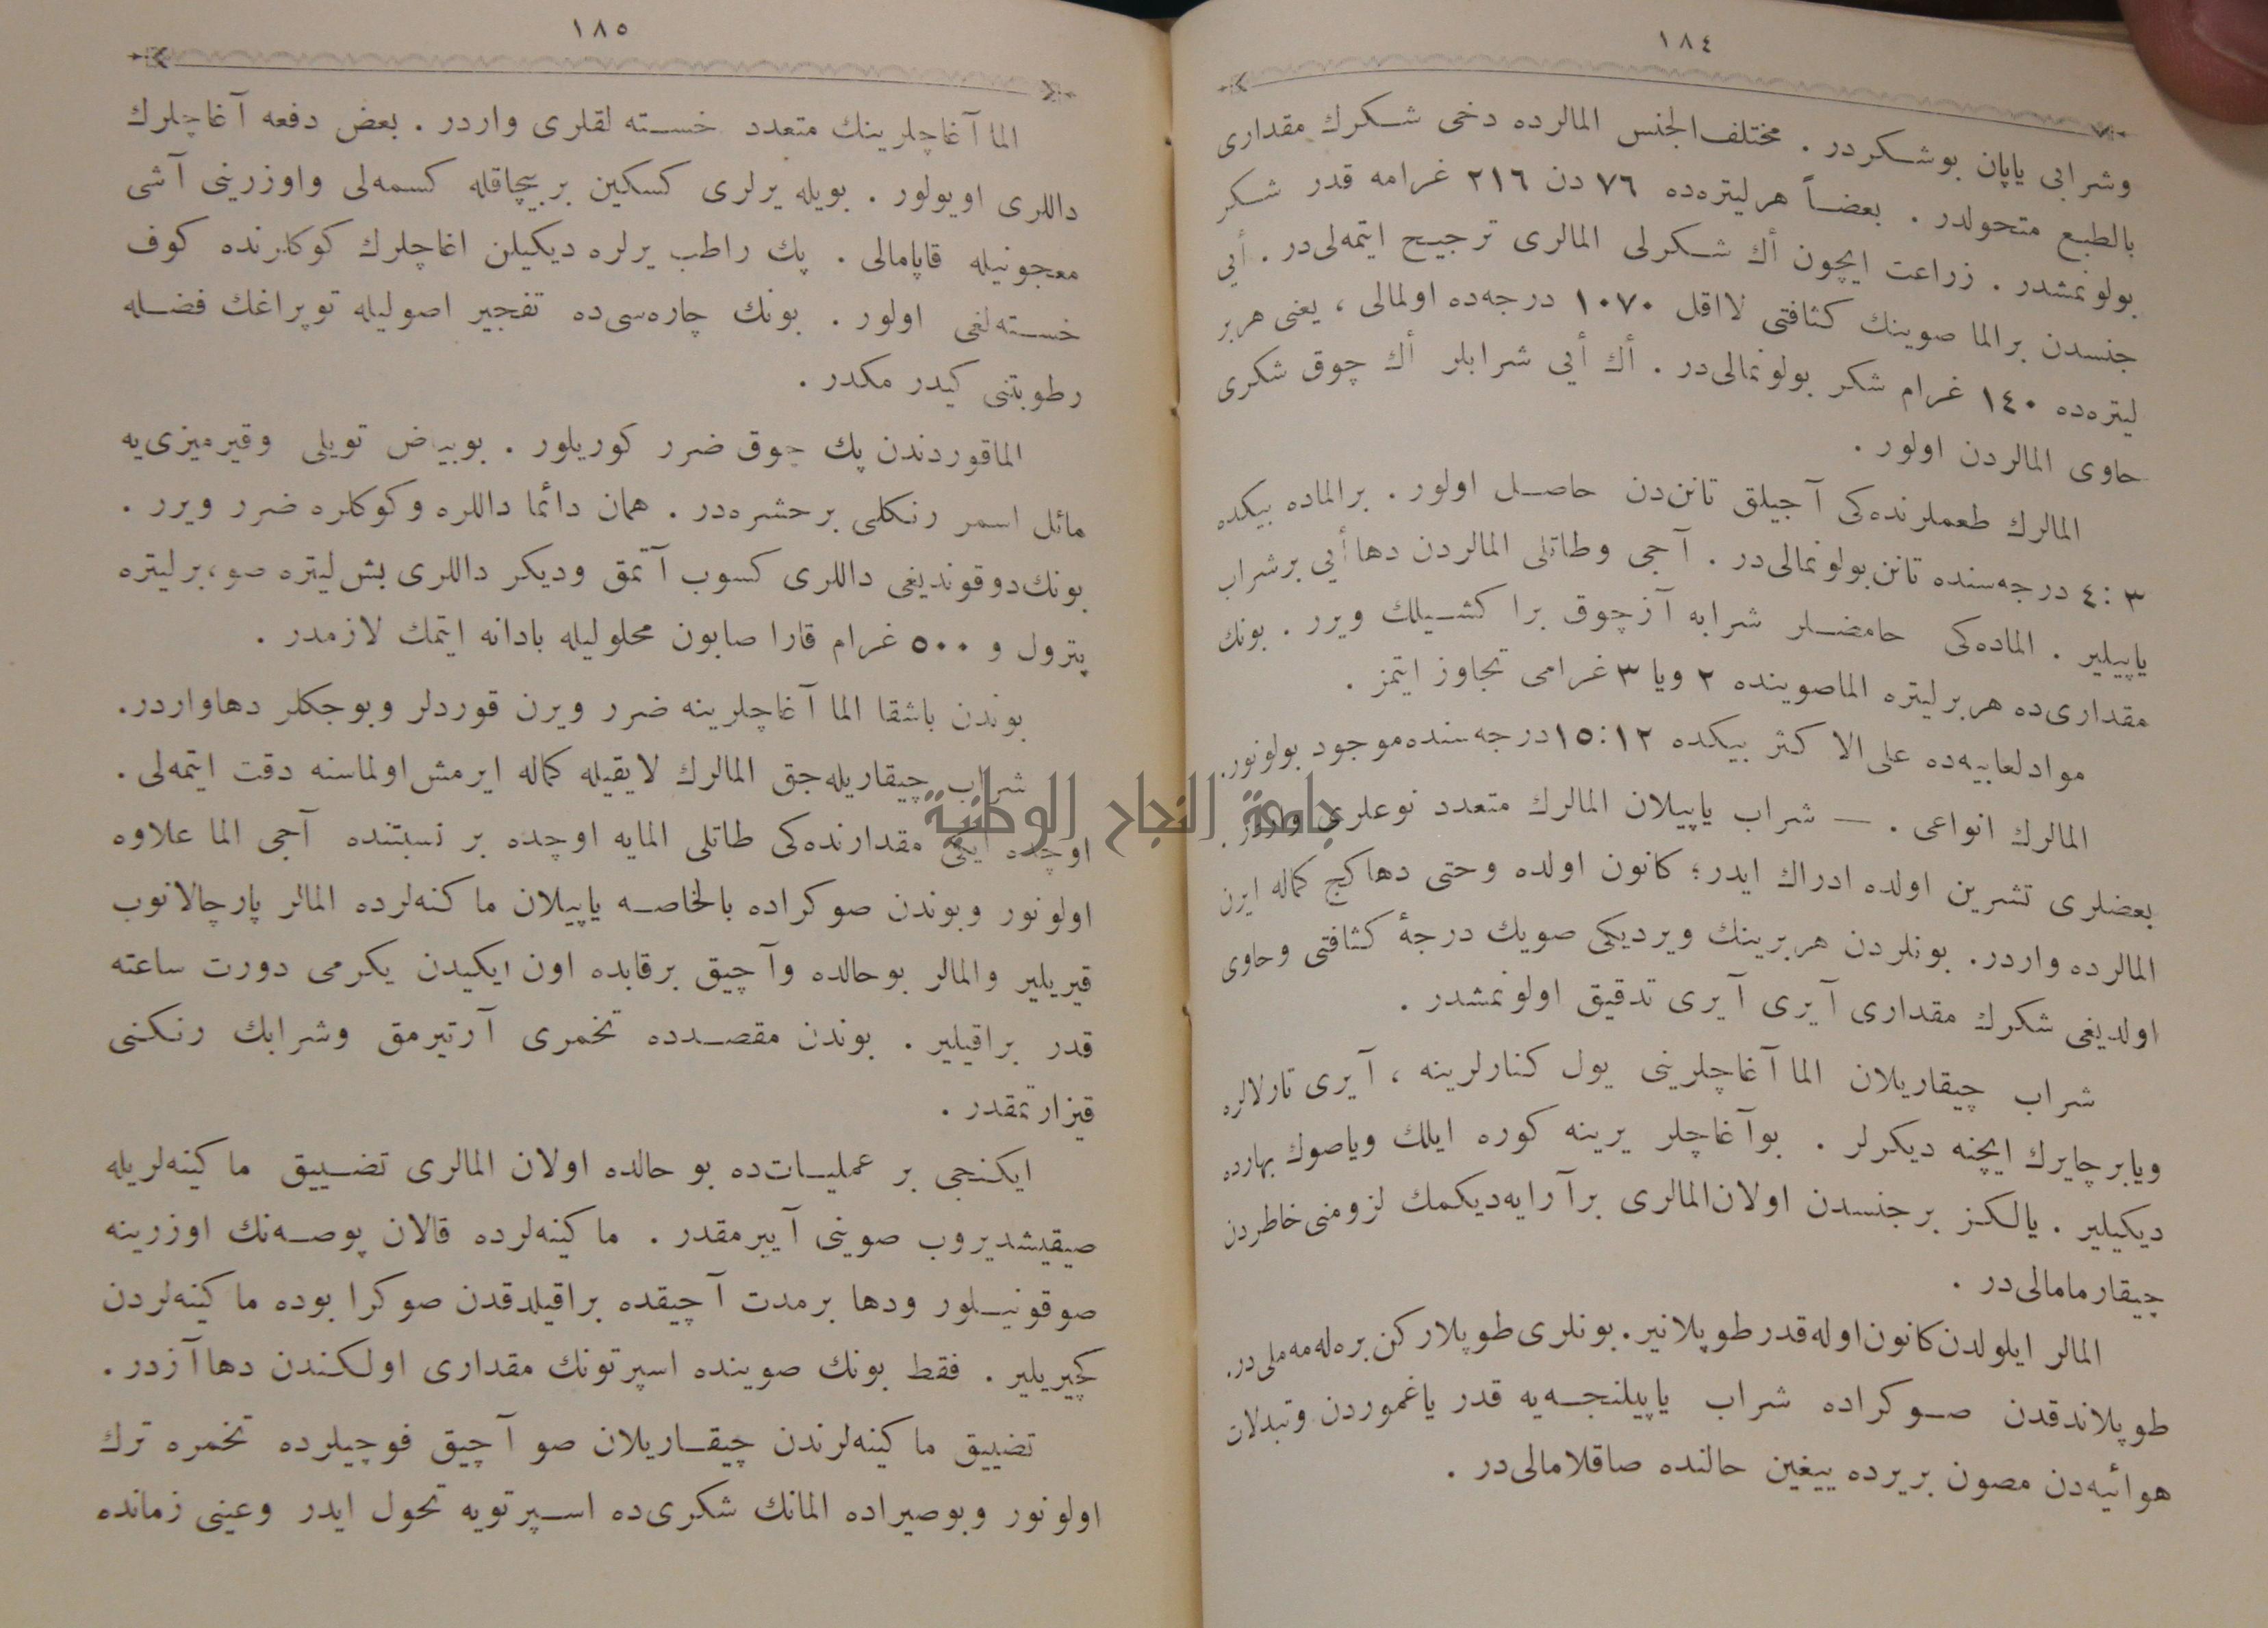 ١٨٤
وشرابى ياپان بوشكردر . مختلف‌الجنس المالرده دخى شكرك مقدارى
بالطبع متحولدر . بعضاً هرليتره‌ده ٧٦ دن ٢١٦ غرامه قدر شكر
بولونمشدر . زراعت ايچون أك شكرلى المالرى ترجيح ايتمه‌لى‌در . أيى
جنسدن برالما صوينك كثافتى لااقل ١٠٧٠ درجه‌ده اولمالى ، يعنى هربر
ليتره‌ده ١٤٠ غرام شكر بولونمالى‌در . أك أيى شرابلر أك چوق شكرى
حاوى المالردن اولور .
المالرك طعملرنده‌كى آجيلق تانن‌دن حاصل اولور . برالماده بيكده
٤:٣ درجه‌سنده تانن‌بولونمالى‌در . آجى وطاتلى المالردن دهاأيى برشراب
ياپيلير . الماده‌كى حامضلر شرابه آزچوق برا كشيلك ويرر . بونك
مقدارى‌ده هربرليتره الماصوينده ٢ ويا ٣ غرامى تجاوز ايتمز .
موادلعابيه‌ده على‌الاكثر بيكده ١٥:١٢درجه‌سنده‌موجود بولونور.
المالرك انواعى . — شراب ياپيلان المالرك متعدد نوعلرى واردر .
بعضلرى تشرين اولده ادراك ايدر؛ كانون اولده وحتى دهاكج كماله ايرن
المالرده واردر. بونلردن هربرينك ويرديكى صويك درجهٔ كثافتى وحاوى
اولديغى شكرك مقدارى آيرى آيرى تدقيق اولونمشدر .
شراب چيقاريلان الماآغاچلرينى يول كنارلرينه ، آيرى تارلالره
ويابرچايرك ايچنه ديكرلر . بوآغاچلر يرينه كوره ايلك وياصوك بهارده
ديكيلير . يالكز برجنسدن اولان‌المالرى برآرايه‌ديكمك لزومنى‌خاطردن
چيقارمامالى‌در .
المالر ايلولدن‌كانون‌اوله‌قدرطوپلانير. بونلرى‌طوپلاركن‌بره‌له‌مه‌ملى‌در.
طوپلاندقدن صوكراده شراب ياپيلنجه‌يه قدر ياغموردن وتبدلات
هوائيه‌دن مصون بريرده ييغين حالنده صاقلامالى‌در .
١٨٥
الماآغاچلرينك متعدد خسته‌لقلرى واردر . بعض دفعه آغاچلرك
داللرى اويولور . بويله يرلرى كسكين بربيچاقله كسمه‌لى واوزرينى آشى
معجونيله قاپامالى . پك راطب يرلره ديكيلن اغاچلرك كوكلرنده كوف
خسته‌لغى اولور . بونك چاره‌سى‌ده تفجير اصوليله توپراغك فضله
رطوبتنى كيدرمكدر .
الماقوردندن پك چوق ضرر كوريلور . بوبياض تويلى وقيرميزى‌يه
مائل اسمر رنكلى برحشره‌در . همان دائما داللره وكوكلره ضرر ويرر .
بونك‌دوقونديغى داللرى كسوب آتمق وديكر داللرى بش‌ليتره صو،برليتره
پترول و ٥٠٠ غرام قارا صابون محلوليله بادانه ايتمك لازمدر .
بوندن باشقا الما آغاچلرينه ضرر ويرن قوردلر وبوجكلر دهاواردر.
شراب چيقاريله‌جق المالرك لايقيله كماله ايرمش‌اولماسنه دقت ايتمه‌لى .
اوچده ايكى مقدارنده‌كى طاتلى المايه اوچده بر نسبتنده آجى الما علاوه
اولونور وبوندن صوكراده بالخاصه ياپيلان ماكنه‌لرده المالر پارچالانوب
قيريلير والمالر بوحالده وآچيق برقابده اون ايكيدن يكرمى دورت ساعته
قدر براقيلير . بوندن مقصدده تخمرى آرتيرمق وشرابك رنكنى
قيزارتمقدر .
ايكنجى بر عملياتده بو حالده اولان المالرى تضييق ماكينه‌لريله
صيقيشديروب صوينى آييرمقدر . ماكينه‌لرده قالان پوصه‌نك اوزرينه
صوقونيلور ودها برمدت آچيقده براقيلدقدن صوكرا بوده ماكينه‌لردن
كچيريلير . فقط بونك صوينده اسپرتونك مقدارى اولكندن دهاآزدر .
تضييق ماكينه‌لرندن چيقاريلان صو آچيق فوچيلرده تخمره ترك
اولونور وبوصيراده المانك شكرى‌ده اسپرتويه تحول ايدر وعينى زمانده
جامعة النجاح الوطنية